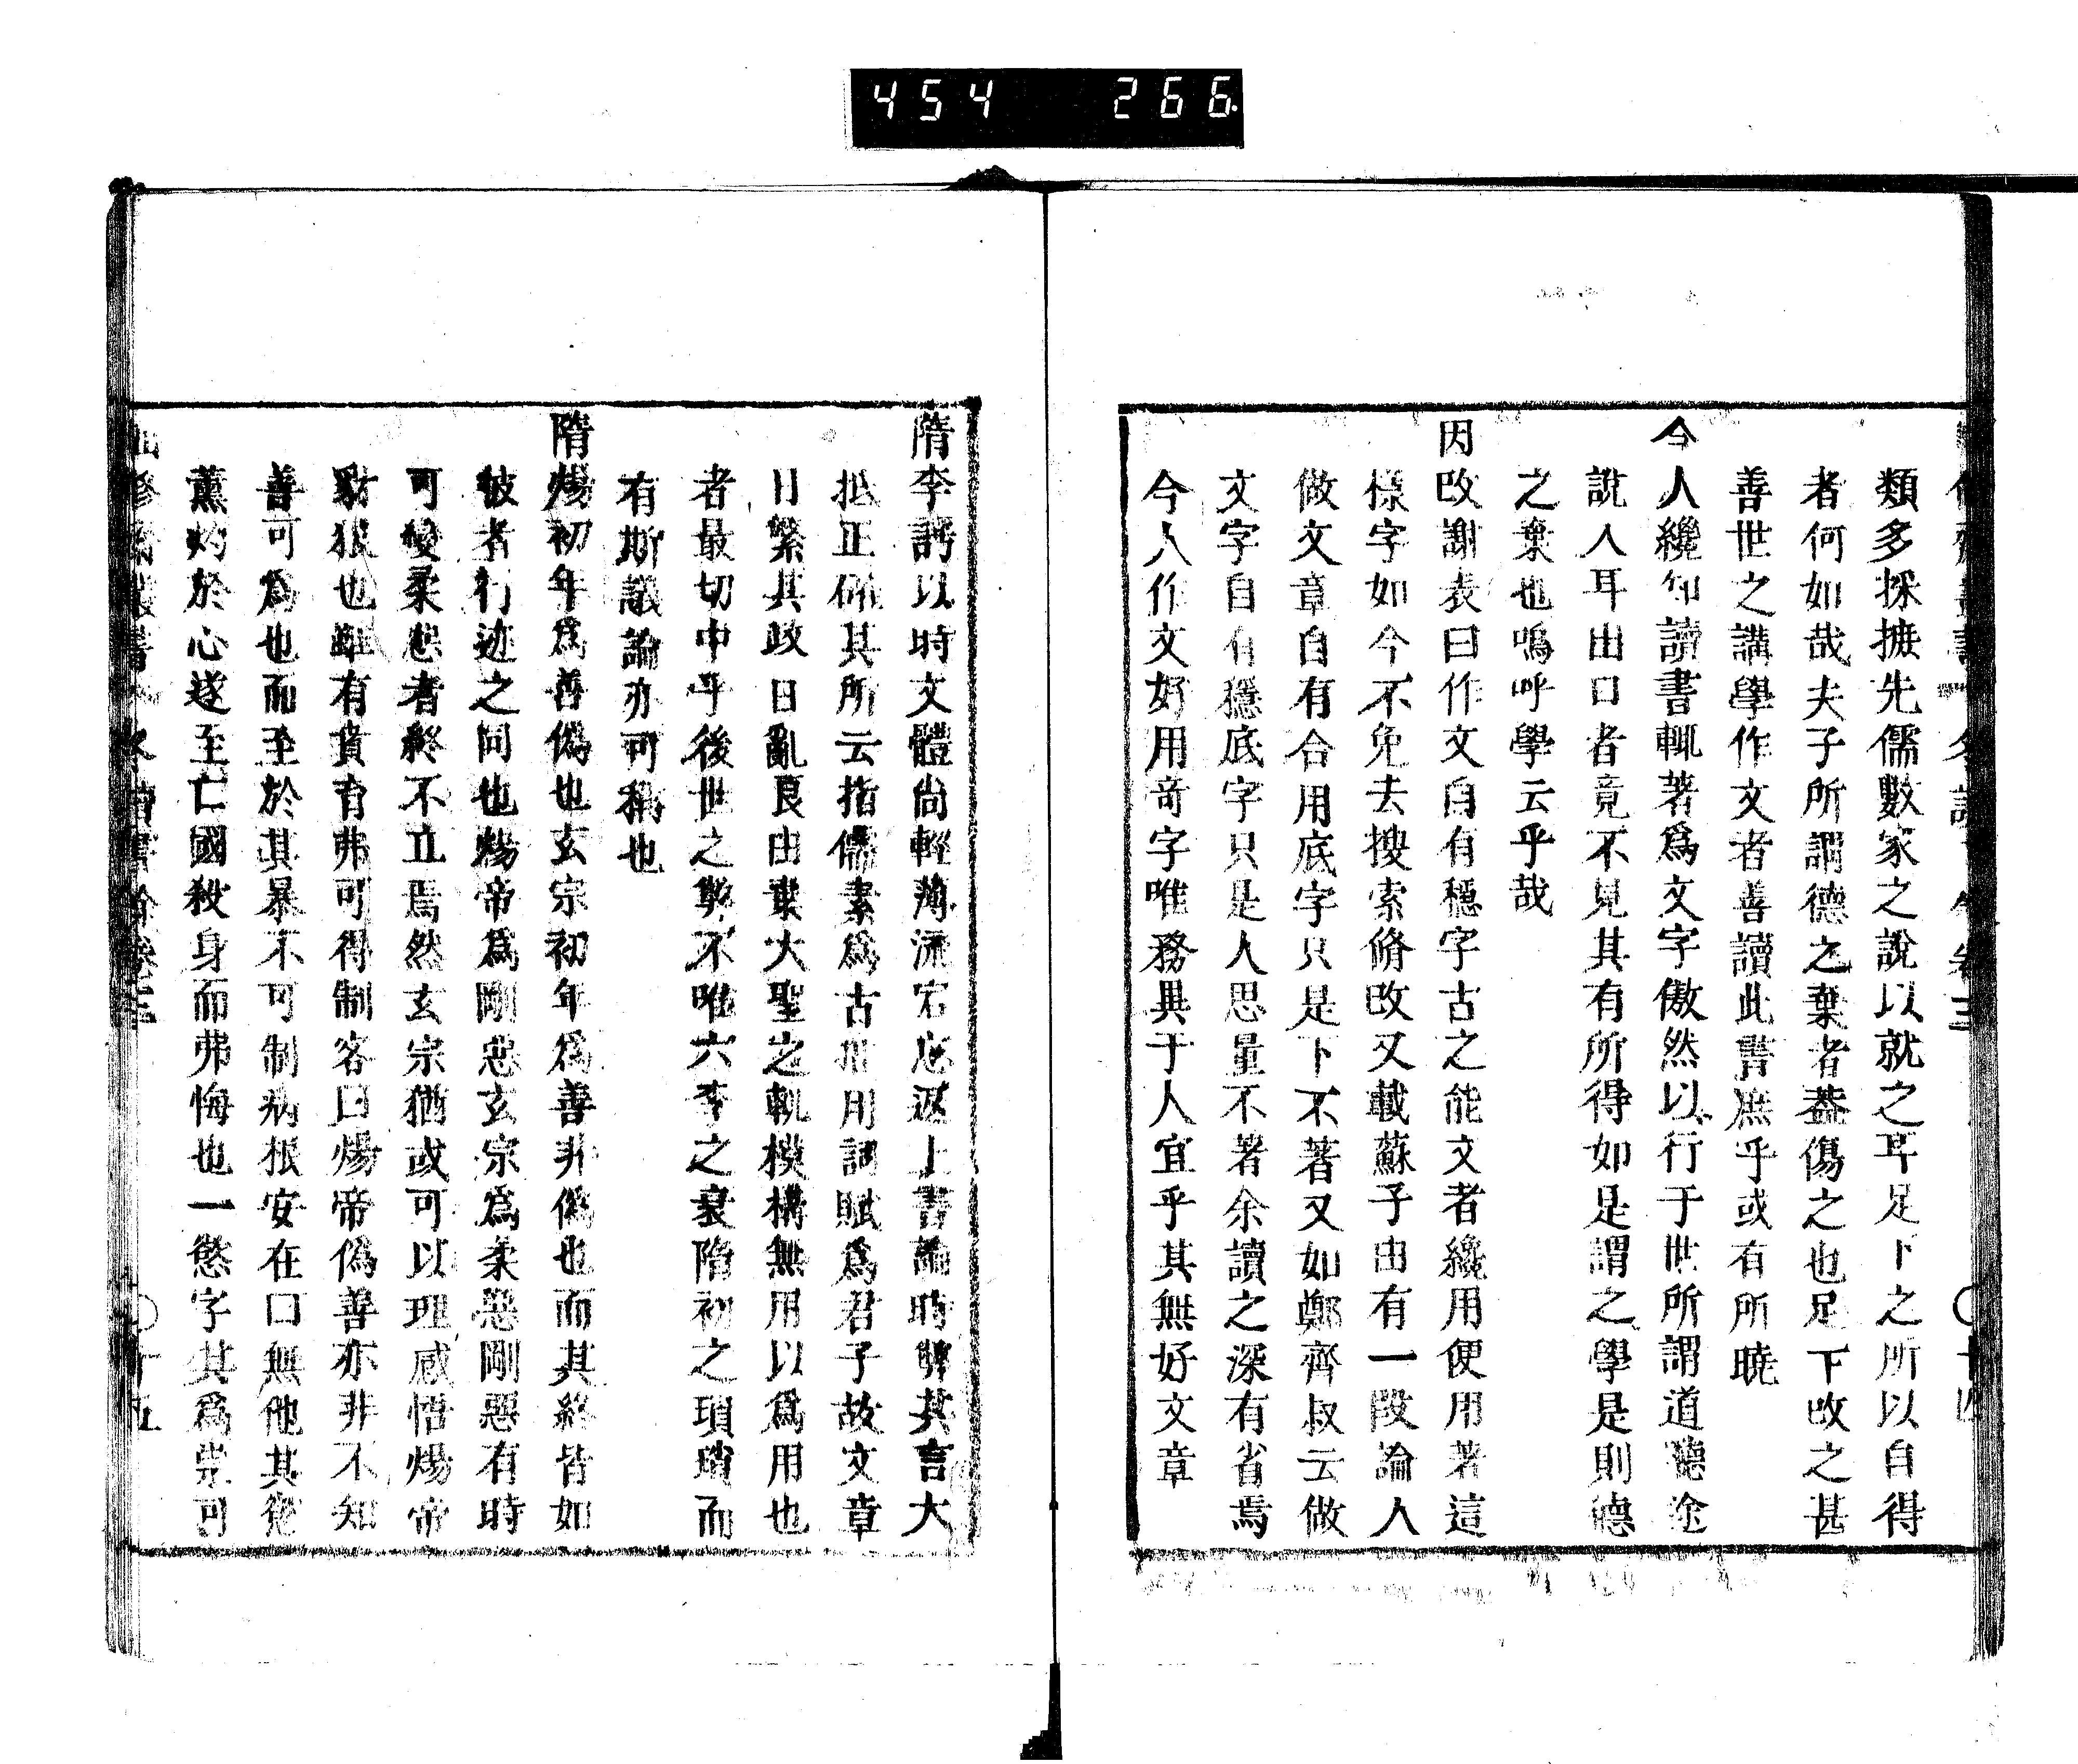 454 266
類多採摭先儒數家之說以就之耳足下之所以自得
者何如哉夫子所謂德之棄者蓋傷之也足下改之甚
善世之講學作文者善讀此書庶乎或有所曉
今人纔知讀書輒著爲文字傲然以行于世所謂道聽塗
說入耳出口者竟不見其有所得如是謂之學是則德
之棄也嗚呼學云乎哉
因改謝表曰作文自有穩字古之能文者纔用便用著這
樣字如今不免去搜索脩改又載蘇子由有一段論人
做文章自有合用底字只是下不著又如鄭齊叔云做
文字自有穩底字只是人思量不著余讀之深有省焉
今人作文好用奇字唯務異于人宜乎其無好文章
隋李諤以時文體尙輕薄流宕忘返上書論時弊其言大
抵正確其所云指儒素爲古拙用詞賦爲君子故文章
日繁其政日亂良由棄大聖之軌模構無用以爲用也
者最切中乎後世之弊不唯六季之衰隋初之瑣瑣而
有斯議論亦可稱也
隋煬初年爲善僞也玄宗初年爲善非僞也而其終皆如
彼者行迹之同也煬帝爲剛惡玄宗爲柔惡剛惡有時
可變柔惡者終不立焉然玄宗猶或可以理感悟煬帝
豺狼也雖有賁育弗可得制客曰煬帝僞善亦非不知
善可爲也而至於其暴不可制病根安在曰無他其慾
薰灼於心遂至亡國殺身而弗悔也一慾字其爲祟可
十五